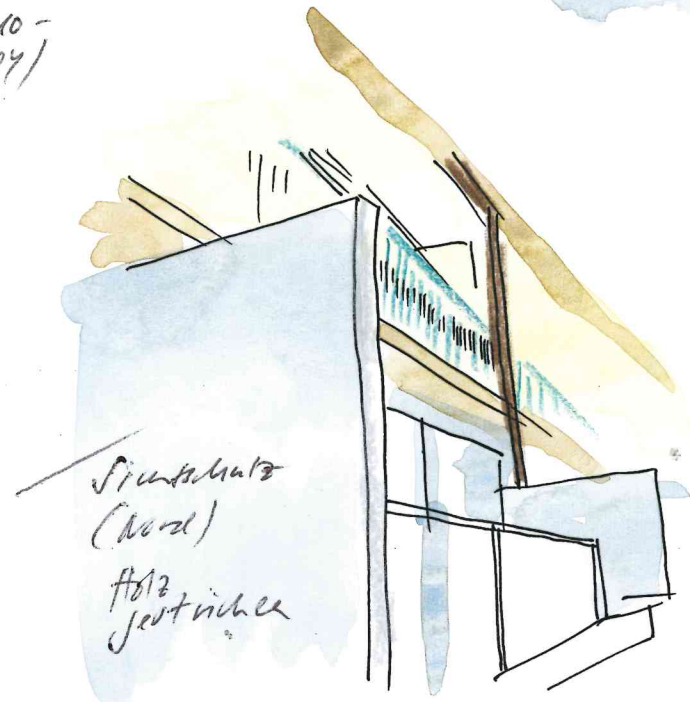 Sichtschutz
(Nord)
Holz
gestrichen